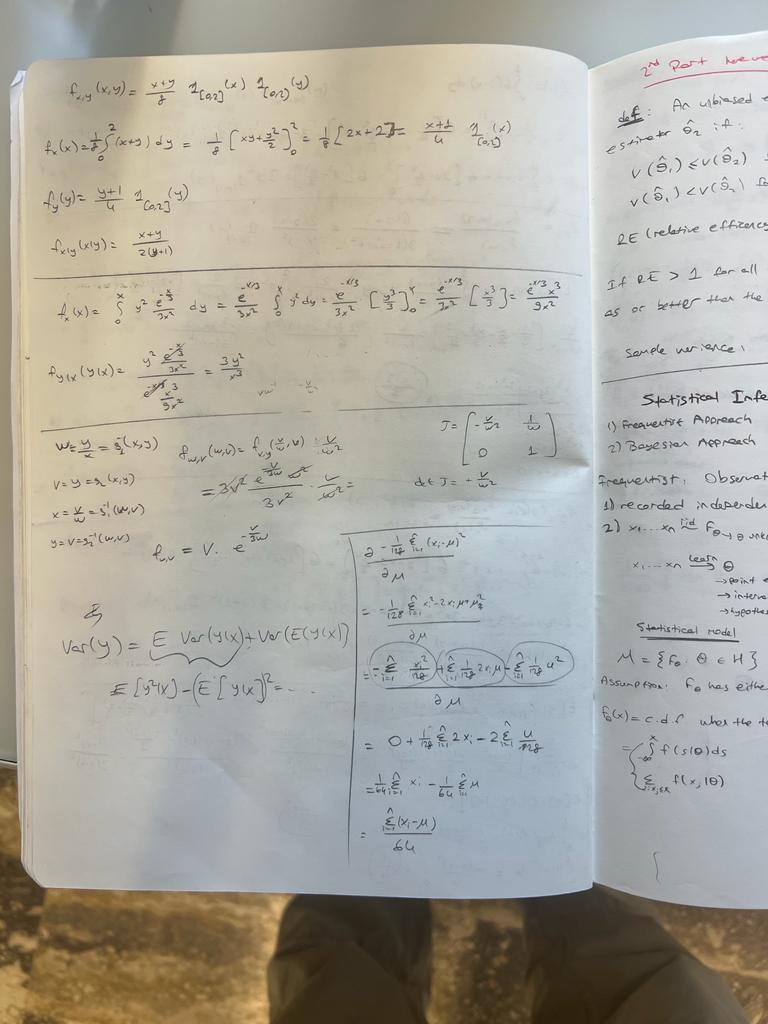 f_{x,y}(x,y) = \frac{x+y}{8} 1_{[0,2]}(x) 1_{[0,2]}(y)
f_x(x) = \frac{1}{8} \int_0^2 (x+y) dy = \frac{1}{8} [xy + \frac{y^2}{2}]_0^2 = \frac{1}{8} [2x+2] = \frac{x+1}{4} 1_{[0,2]}(x)
f_y(y) = \frac{y+1}{4} 1_{[0,2]}(y)
f_{x|y}(x|y) = \frac{x+y}{2(y+1)}
f_x(x) = \int_0^x y^2 \frac{e^{-\frac{x}{3}}}{3x^2} dy = \frac{e^{-x/3}}{3x^2} \int_0^x y^2 dy = \frac{e^{-x/3}}{3x^2} [\frac{y^3}{3}]_0^x = \frac{e^{-x/3}}{3x^2} [\frac{x^3}{3}] = \frac{e^{-x/3} x^3}{9x^2}
f_{y|x}(y|x) = \frac{y^2 \frac{e^{-x/3}}{3x^2}}{\frac{e^{-x/3} x^3}{9x^2}} = \frac{3y^2}{x^3}
w = \frac{y}{x} = g_1^{-1}(x,y)
v = y = g_2(x,y)
x = \frac{v}{w} = g_1^{-1}(w,v)
y = v = g_2^{-1}(w,v)
f_{w,v}(w,v) = f_{x,y}(\frac{v}{w},v) \cdot \frac{v}{w^2}
= 3v^2 \frac{e^{-\frac{v}{3w}} w^2}{3v^2} \cdot \frac{v}{w^2} =
f_{w,v} = v \cdot e^{-\frac{v}{3w}}
J = [-\frac{v}{w^2} \frac{1}{w}
0 1]
det J = -\frac{v}{w^2}
Var(y) = E Var(y|x) + Var(E(y|x))
E[y^2|x] - (E[y|x])^2 = ...
\frac{∂ -\frac{1}{128} \sum_{i=1}^n (x_i-μ)^2}{∂μ}
= \frac{-\frac{1}{128} \sum_{i=1}^n x_i^2 - 2x_i μ + μ^2}{∂μ}
= \frac{-\sum_{i=1}^n \frac{x_i^2}{128} + \sum_{i=1}^n \frac{1}{128} 2x_i μ - \sum_{i=1}^n \frac{1}{128} μ^2}{∂μ}
= 0 + \frac{1}{128} \sum_{i=1}^n 2x_i - 2\sum_{i=1}^n \frac{μ}{128}
= \frac{1}{64} \sum_{i=1}^n x_i - \frac{1}{64} \sum_{i=1}^n μ
= \frac{\sum_{i=1}^n (x_i-μ)}{64}
2nd Part
def: An unbiased
estimator θ̂_2 if:
V(θ̂_1) ≤ V(θ̂_2)
V(θ̂_1) < V(θ̂_2)
RE (relative efficiency
If RE > 1 for all
as or better than the
Sample varience:
Statistical Infe
1) Frequentist Approach
2) Bayesian Approach
Frequentist: Observat
1) recorded independen
2) x_1...x_n iid F_θ → θ
x_1...x_n learn→ θ
→point
→interva
→hypothe
Statistical model
M = {F_θ: θ ∈ H}
Assumption: F_θ has eithe
F_θ(x) = c.d.f
= { \int_{-∞}^x f(s|θ)ds
\sum_{i:x_i≤x} f(x_i|θ)